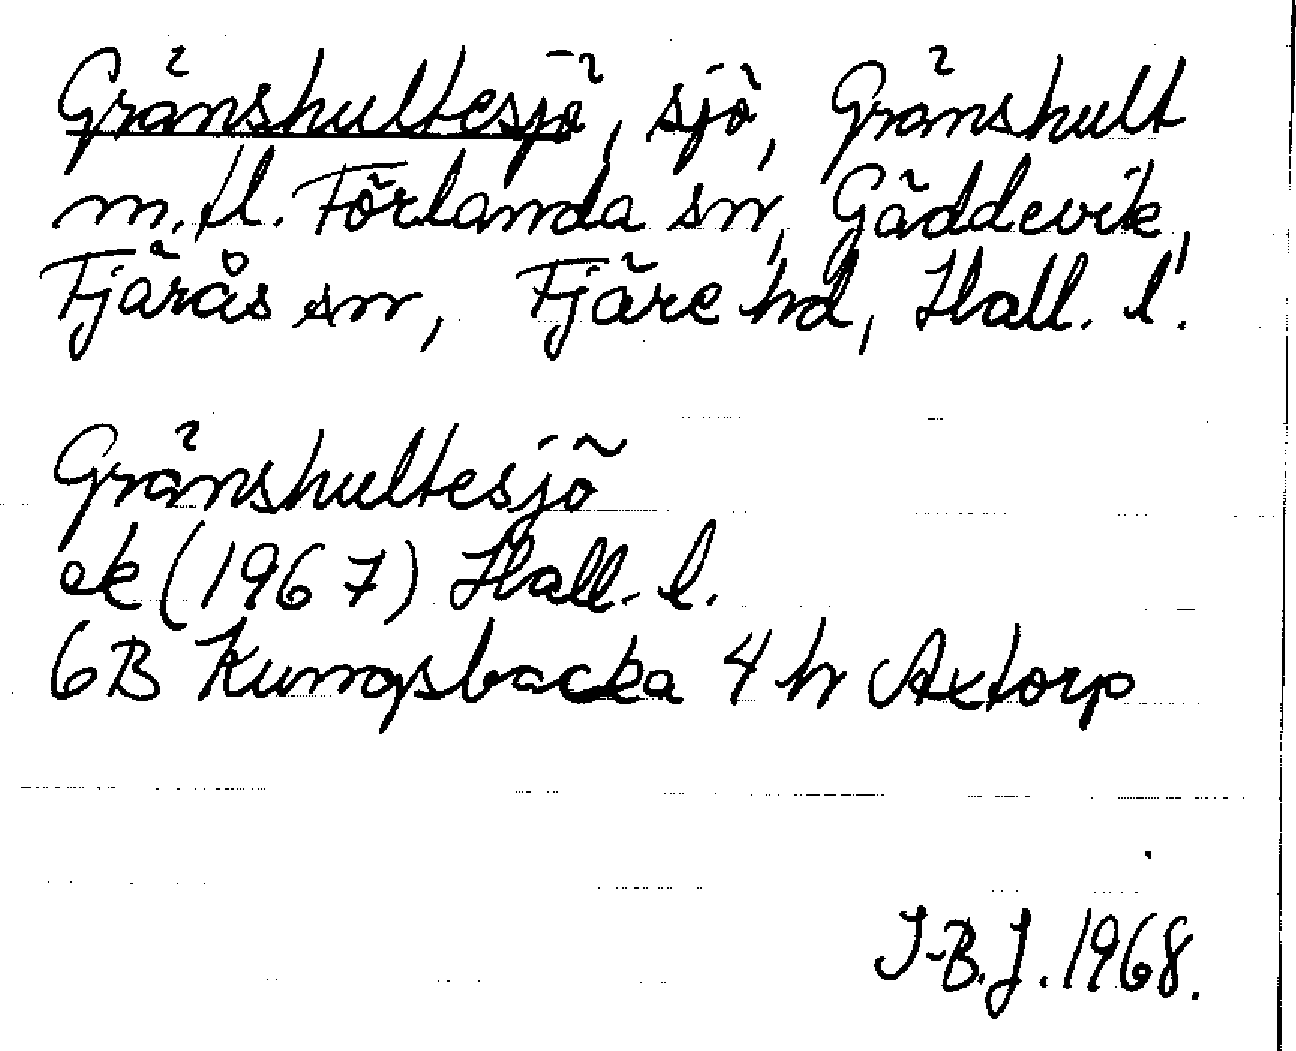 Gränshultesjö, sjö, Gränshult
m.fl. Förlanda sn, Gäddevik,
Fjärås sn, Fjäre hd, Hall. l.
Gränshultesjö
ek (1967) Hall. l.
6B Kungsbacka 4 h Axtorp
I-B.J. 1968.